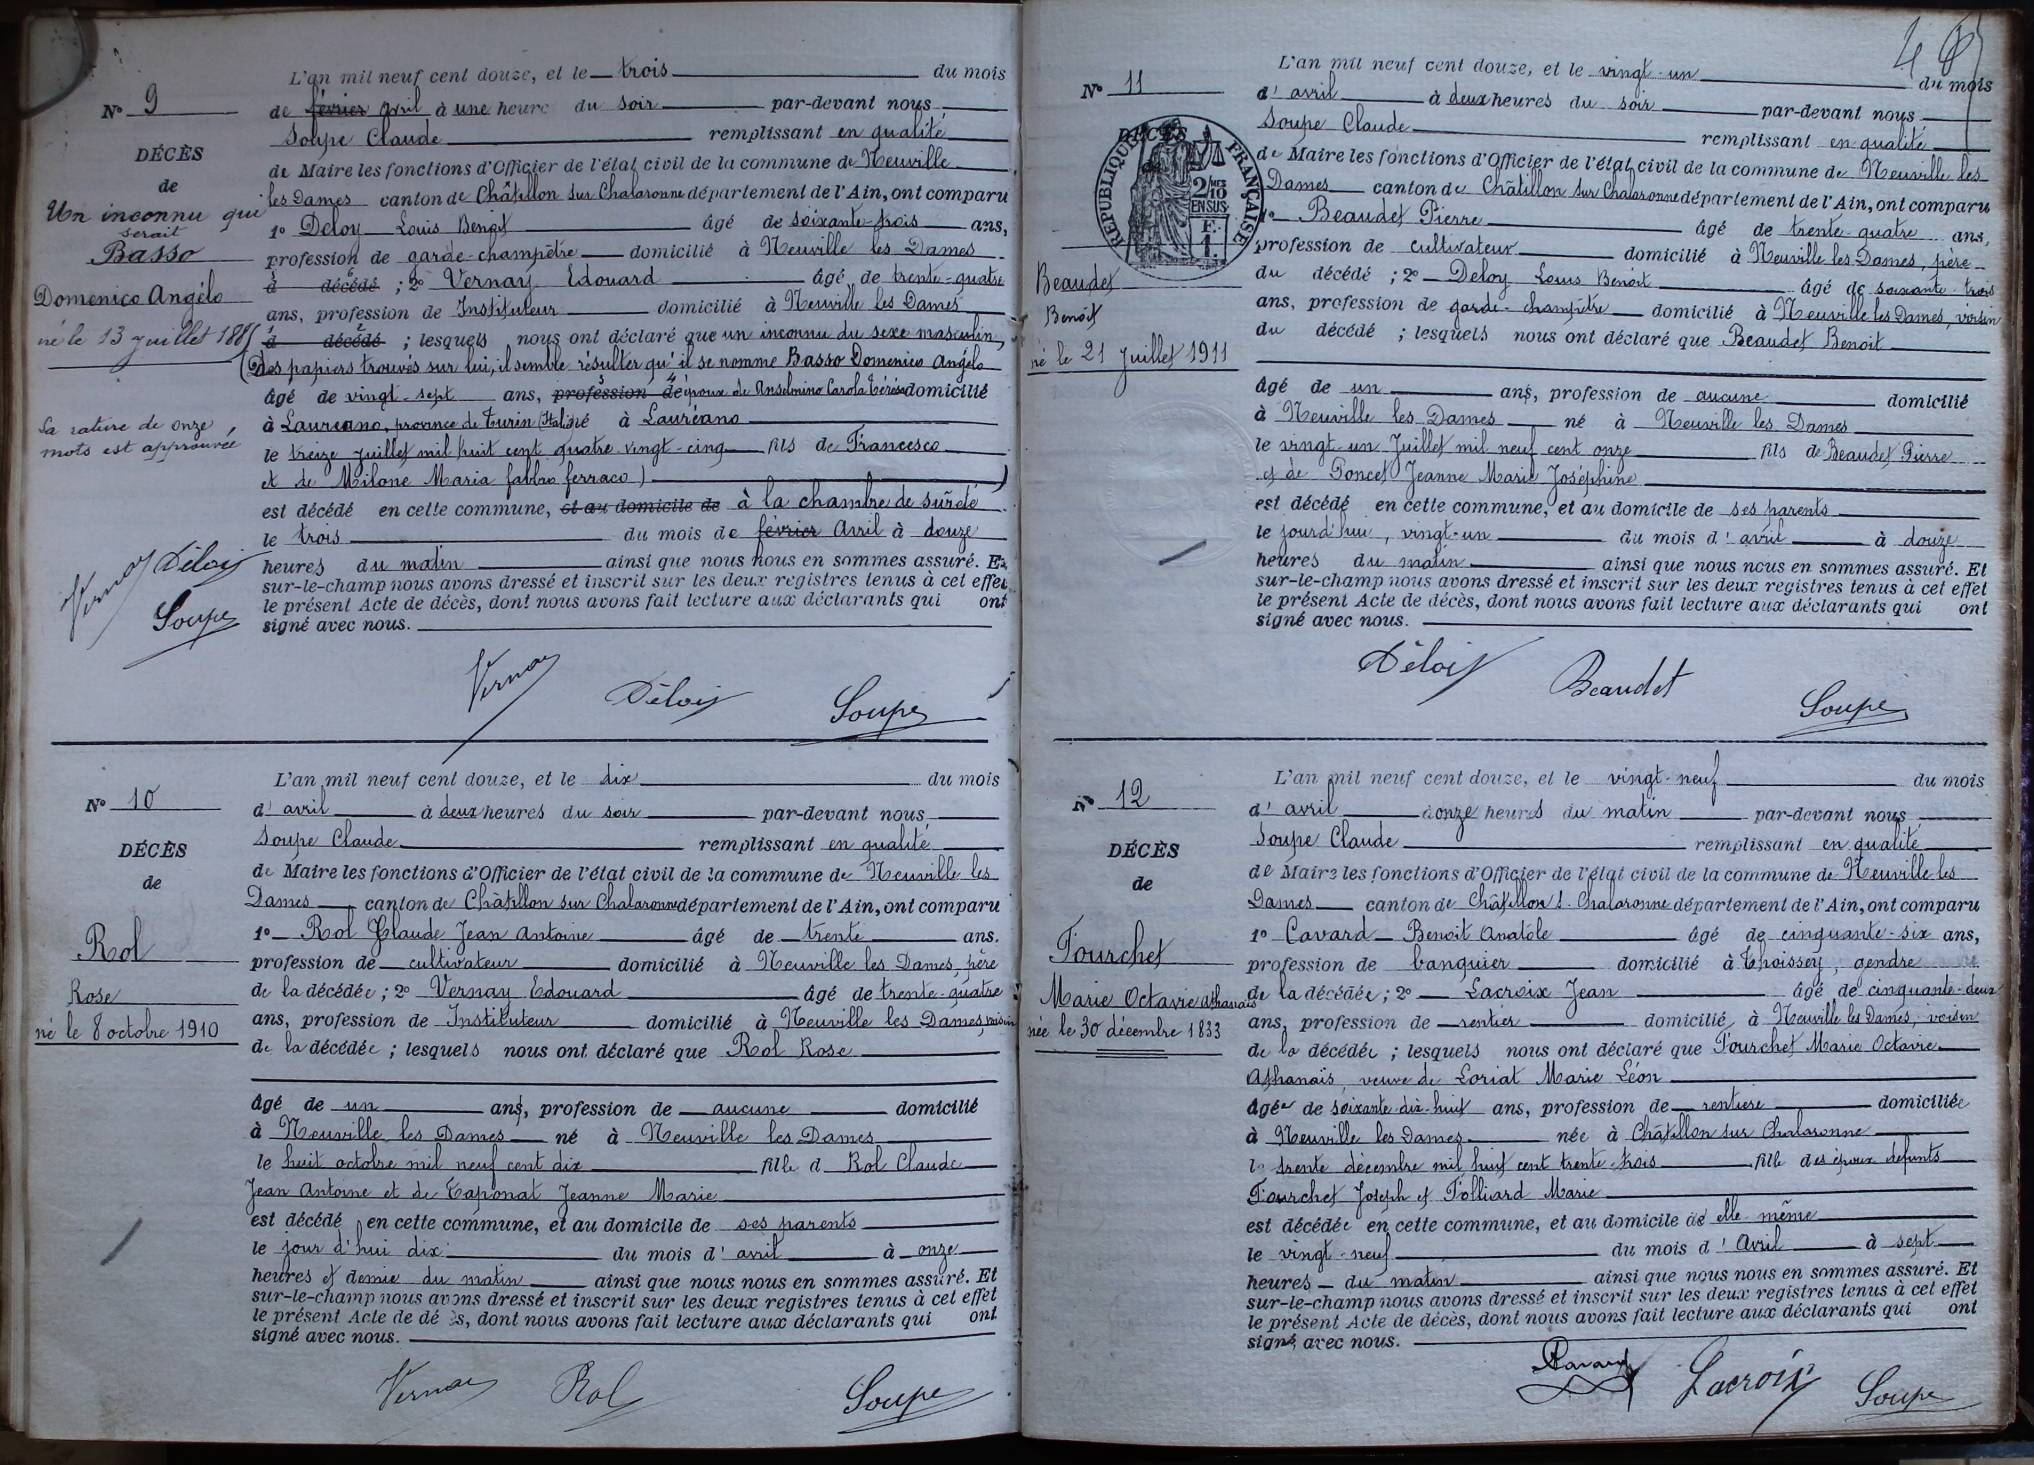 N° 9
DÉCÈS
de
Un inconnu qui
serait
Basso
Domenico Angélo
né le 13 juillet 1885
La rature de onze
mots est approuvée
Vernay Déloix
Soupe
L'an mil neuf cent douze, et le trois du mois
de février avril à une heure du soir par-devant nous
Soupe Claude remplissant en qualité
de Maire les fonctions d'Officier de l'état civil de la commune de Neuville
les Dames canton de Châtillon sur Chalaronne département de l'Ain, ont comparu
1° Deloy Louis Benoit âgé de soixante-trois ans,
profession de garde-champêtre domicilié à Neuville les Dames
à décédé ; 2° Vernay Edouard âgé de trente-quatre
ans, profession de Instituteur domicilié à Neuville les Dames
à décédé ; lesquels nous ont déclaré que un inconnu du sexe masculin,
(Des papiers trouvés sur lui, il semble résulter qu'il se nomme Basso Domenico Angélo
âgé de vingt-sept ans, profession de époux de Anselmino Carola Térésa domicilié
à Laureano, province de Turin (Italie) né à Lauréano
le treize juillet mil huit cent quatre vingt-cinq fils de Francesco
et de Milone Maria fabbro ferraco)
est décédé en cette commune, et au domicile de à la chambre de sûreté
le trois du mois de février Avril à douze
heures du matin ainsi que nous nous en sommes assuré. Et
sur-le-champ nous avons dressé et inscrit sur les deux registres tenus à cet effet
le présent Acte de décès, dont nous avons fait lecture aux déclarants qui ont
signé avec nous.
Vernay Déloix Soupe
N° 10
DÉCÈS
de
Rol
Rose
né le 8 octobre 1910
L'an mil neuf cent douze, et le dix du mois
d' avril à deux heures du soir par-devant nous
Soupe Claude remplissant en qualité
de Maire les fonctions d'Officier de l'état civil de la commune de Neuville les
Dames canton de Châtillon sur Chalaronne département de l'Ain, ont comparu
1° Rol Claude Jean Antoine âgé de trente ans.
profession de cultivateur domicilié à Neuville les Dames, père
de la décédée ; 2° Vernay Edouard âgé de trente-quatre
ans, profession de Instituteur domicilié à Neuville les Dames, voisin
de la décédée ; lesquels nous ont déclaré que Rol Rose
âgé de un ans, profession de aucune domicilié
à Neuville les Dames né à Neuville les Dames
le huit octobre mil neuf cent dix fille d Rol Claude
Jean Antoine et de Taponat Jeanne Marie
est décédé en cette commune, et au domicile de ses parents
le jour d'hui dix du mois d' avril à onze
heures et demie du matin ainsi que nous nous en sommes assuré. Et
sur-le-champ nous avons dressé et inscrit sur les deux registres tenus à cet effet
le présent Acte de décès, dont nous avons fait lecture aux déclarants qui ont
signé avec nous.
Vernay Rol Soupe
N° 11
DÉCÈS
RÉPUBLIQUE FRANÇAISE
2/10
EN SUS
Beaudet
Benoit
né le 21 Juillet 1911
L'an mil neuf cent douze, et le vingt-un du mois
d' avril à deux heures du soir par-devant nous
Soupe Claude remplissant en qualité
de Maire les fonctions d'Officier de l'état civil de la commune de Neuville les
Dames canton de Châtillon sur Chalaronne département de l'Ain, ont comparu
1° Beaudet Pierre âgé de trente-quatre ans,
profession de cultivateur domicilié à Neuville les Dames, père
du décédé ; 2° Deloy Louis Benoit âgé de soixante-trois
ans, profession de garde-champêtre domicilié à Neuville les Dames, voisin
du décédé ; lesquels nous ont déclaré que Beaudet Benoit
âgé de un ans, profession de aucune domicilié
à Neuville les Dames né à Neuville les Dames
le vingt-un Juillet mil neuf cent onze fils de Beaudet Pierre
et de Poncet Jeanne Marie Joséphine
est décédé en cette commune, et au domicile de ses parents
le jourd'hui, vingt-un du mois d' avril à douze
heures du matin ainsi que nous nous en sommes assuré. Et
sur-le-champ nous avons dressé et inscrit sur les deux registres tenus à cet effet
le présent Acte de décès, dont nous avons fait lecture aux déclarants qui ont
signé avec nous.
Déloix Beaudet Soupe
N° 12
DÉCÈS
de
Fourchet
Marie Octavie Athanaïs
née le 30 décembre 1833
L'an mil neuf cent douze, et le vingt-neuf du mois
d' avril à onze heures du matin par-devant nous
Soupe Claude remplissant en qualité
de Maire les fonctions d'Officier de l'état civil de la commune de Neuville les
Dames canton de Châtillon s. Chalaronne département de l'Ain, ont comparu
1° Cavard Benoit Anatole âgé de cinquante-six ans,
profession de banquier domicilié à Thoissey, gendre
de la décédée ; 2° Lacroix Jean âgé de cinquante-deux
ans, profession de rentier domicilié à Neuville les Dames, voisin
de la décédée ; lesquels nous ont déclaré que Fourchet Marie Octavie
Athanaïs, veuve de Loriat Marie Léon
âgée de soixante-dix-huit ans, profession de rentière domiciliée
à Neuville les Dames née à Châtillon sur Chalaronne
le trente décembre mil huit cent trente-trois fille des époux défunts
Fourchet Joseph et Folliard Marie
est décédée en cette commune, et au domicile de elle même
le vingt-neuf du mois d' Avril à sept
heures du matin ainsi que nous nous en sommes assuré. Et
sur-le-champ nous avons dressé et inscrit sur les deux registres tenus à cet effet
le présent Acte de décès, dont nous avons fait lecture aux déclarants qui ont
signé avec nous.
Cavard Lacroix Soupe